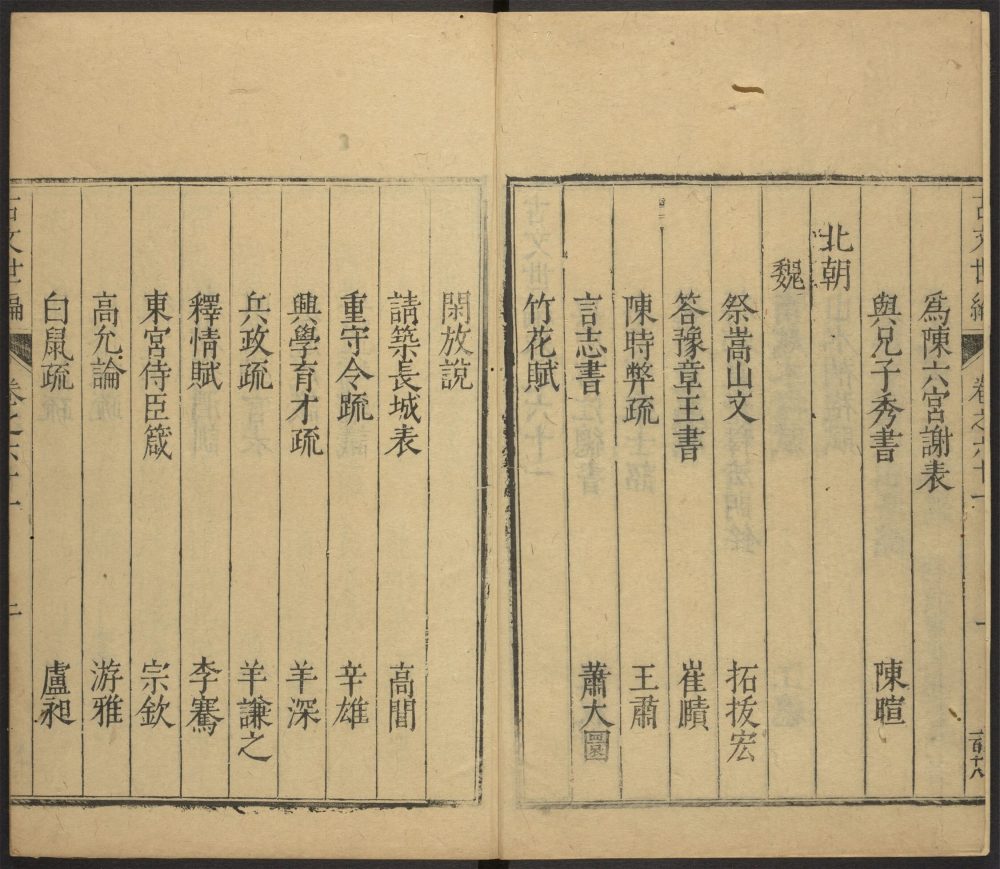 古文世編 卷之六十一 一 百十八
爲陳六宮謝表
與兄子秀書 陳暄
北朝
魏
祭嵩山文 拓拔宏
答豫章王書 崔賾
陳時弊疏 王肅
言志書 蕭大圜
竹花賦
閑放說
請築長城表 高閭
重守令疏 辛雄
興學育才疏 羊深
兵政疏 羊謙之
釋情賦 李騫
東宮侍臣箴 宗欽
高允論 游雅
白鼠疏 盧昶
古文世編 卷之六十一 二